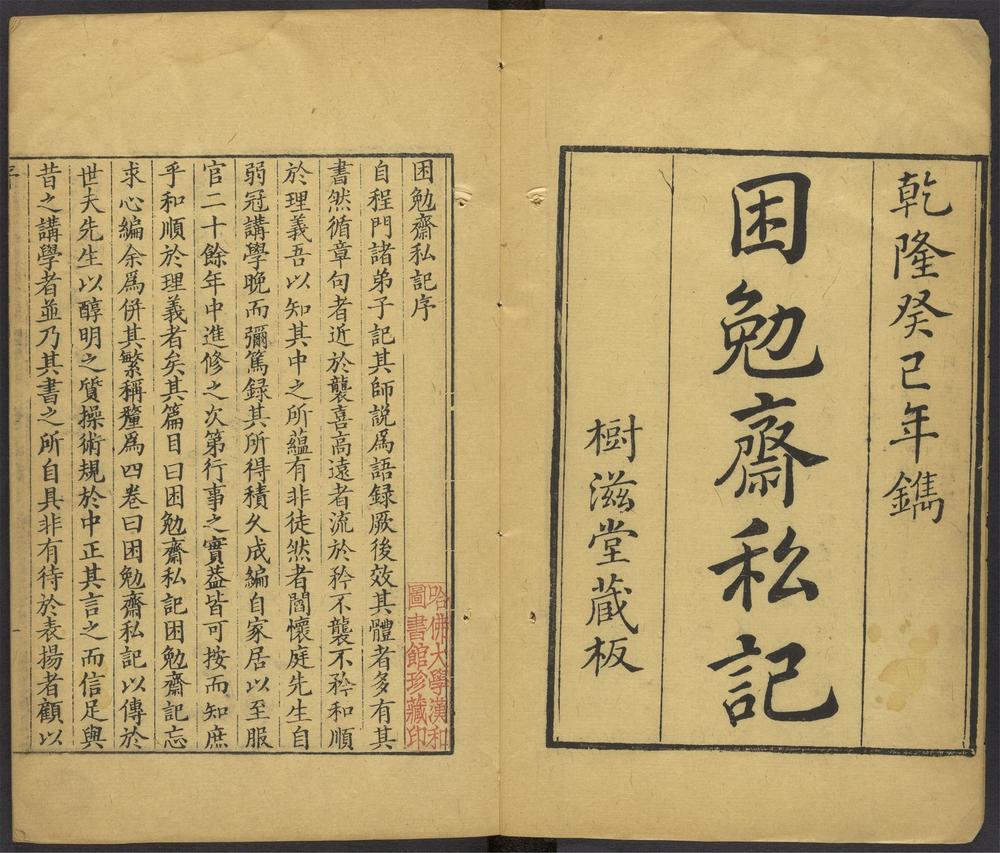 乾隆癸巳年鐫
困勉齋私記
樹滋堂藏板
困勉齋私記序
自程門諸弟子記其師説爲語録厥後效其體者多有其
書然循章句者近於襲喜高遠者流於矜不襲不矜和順
於理義吾以知其中之所蘊有非徒然者閻懷庭先生自
弱冠講學晚而彌篤録其所得積久成編自家居以至服
官二十餘年中進修之次第行事之實葢皆可按而知庶
乎和順於理義者矣其篇目曰困勉齋私記困勉齋記忘
求心編余爲併其繁稱釐爲四卷曰困勉齋私記以傳於
世夫先生以醇明之質操術規於中正其言之而信足與
昔之講學者並乃其書之所自具非有待於表揚者顧以
哈佛大學漢和
圖書館珍藏印